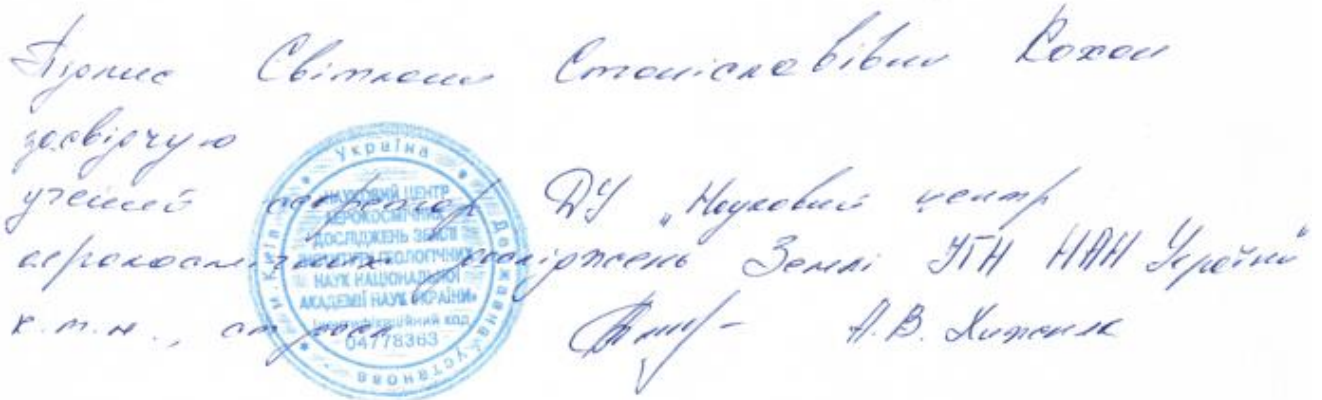 Підпис Світлани Станіславівни Кохан
засвідчую
учений секретар ДУ „Науковий центр
аерокосмічних досліджень Землі ІГН НАН України"
к.т.н., ст. досл. А.В. Хижняк
Україна
Державна установа
м. Київ
НАУКОВИЙ ЦЕНТР
АЕРОКОСМІЧНИХ
ДОСЛІДЖЕНЬ ЗЕМЛІ
ІНСТИТУТУ ГЕОЛОГІЧНИХ
НАУК НАЦІОНАЛЬНОЇ
АКАДЕМІЇ НАУК УКРАЇНИ»
Ідентифікаційний код
04778363